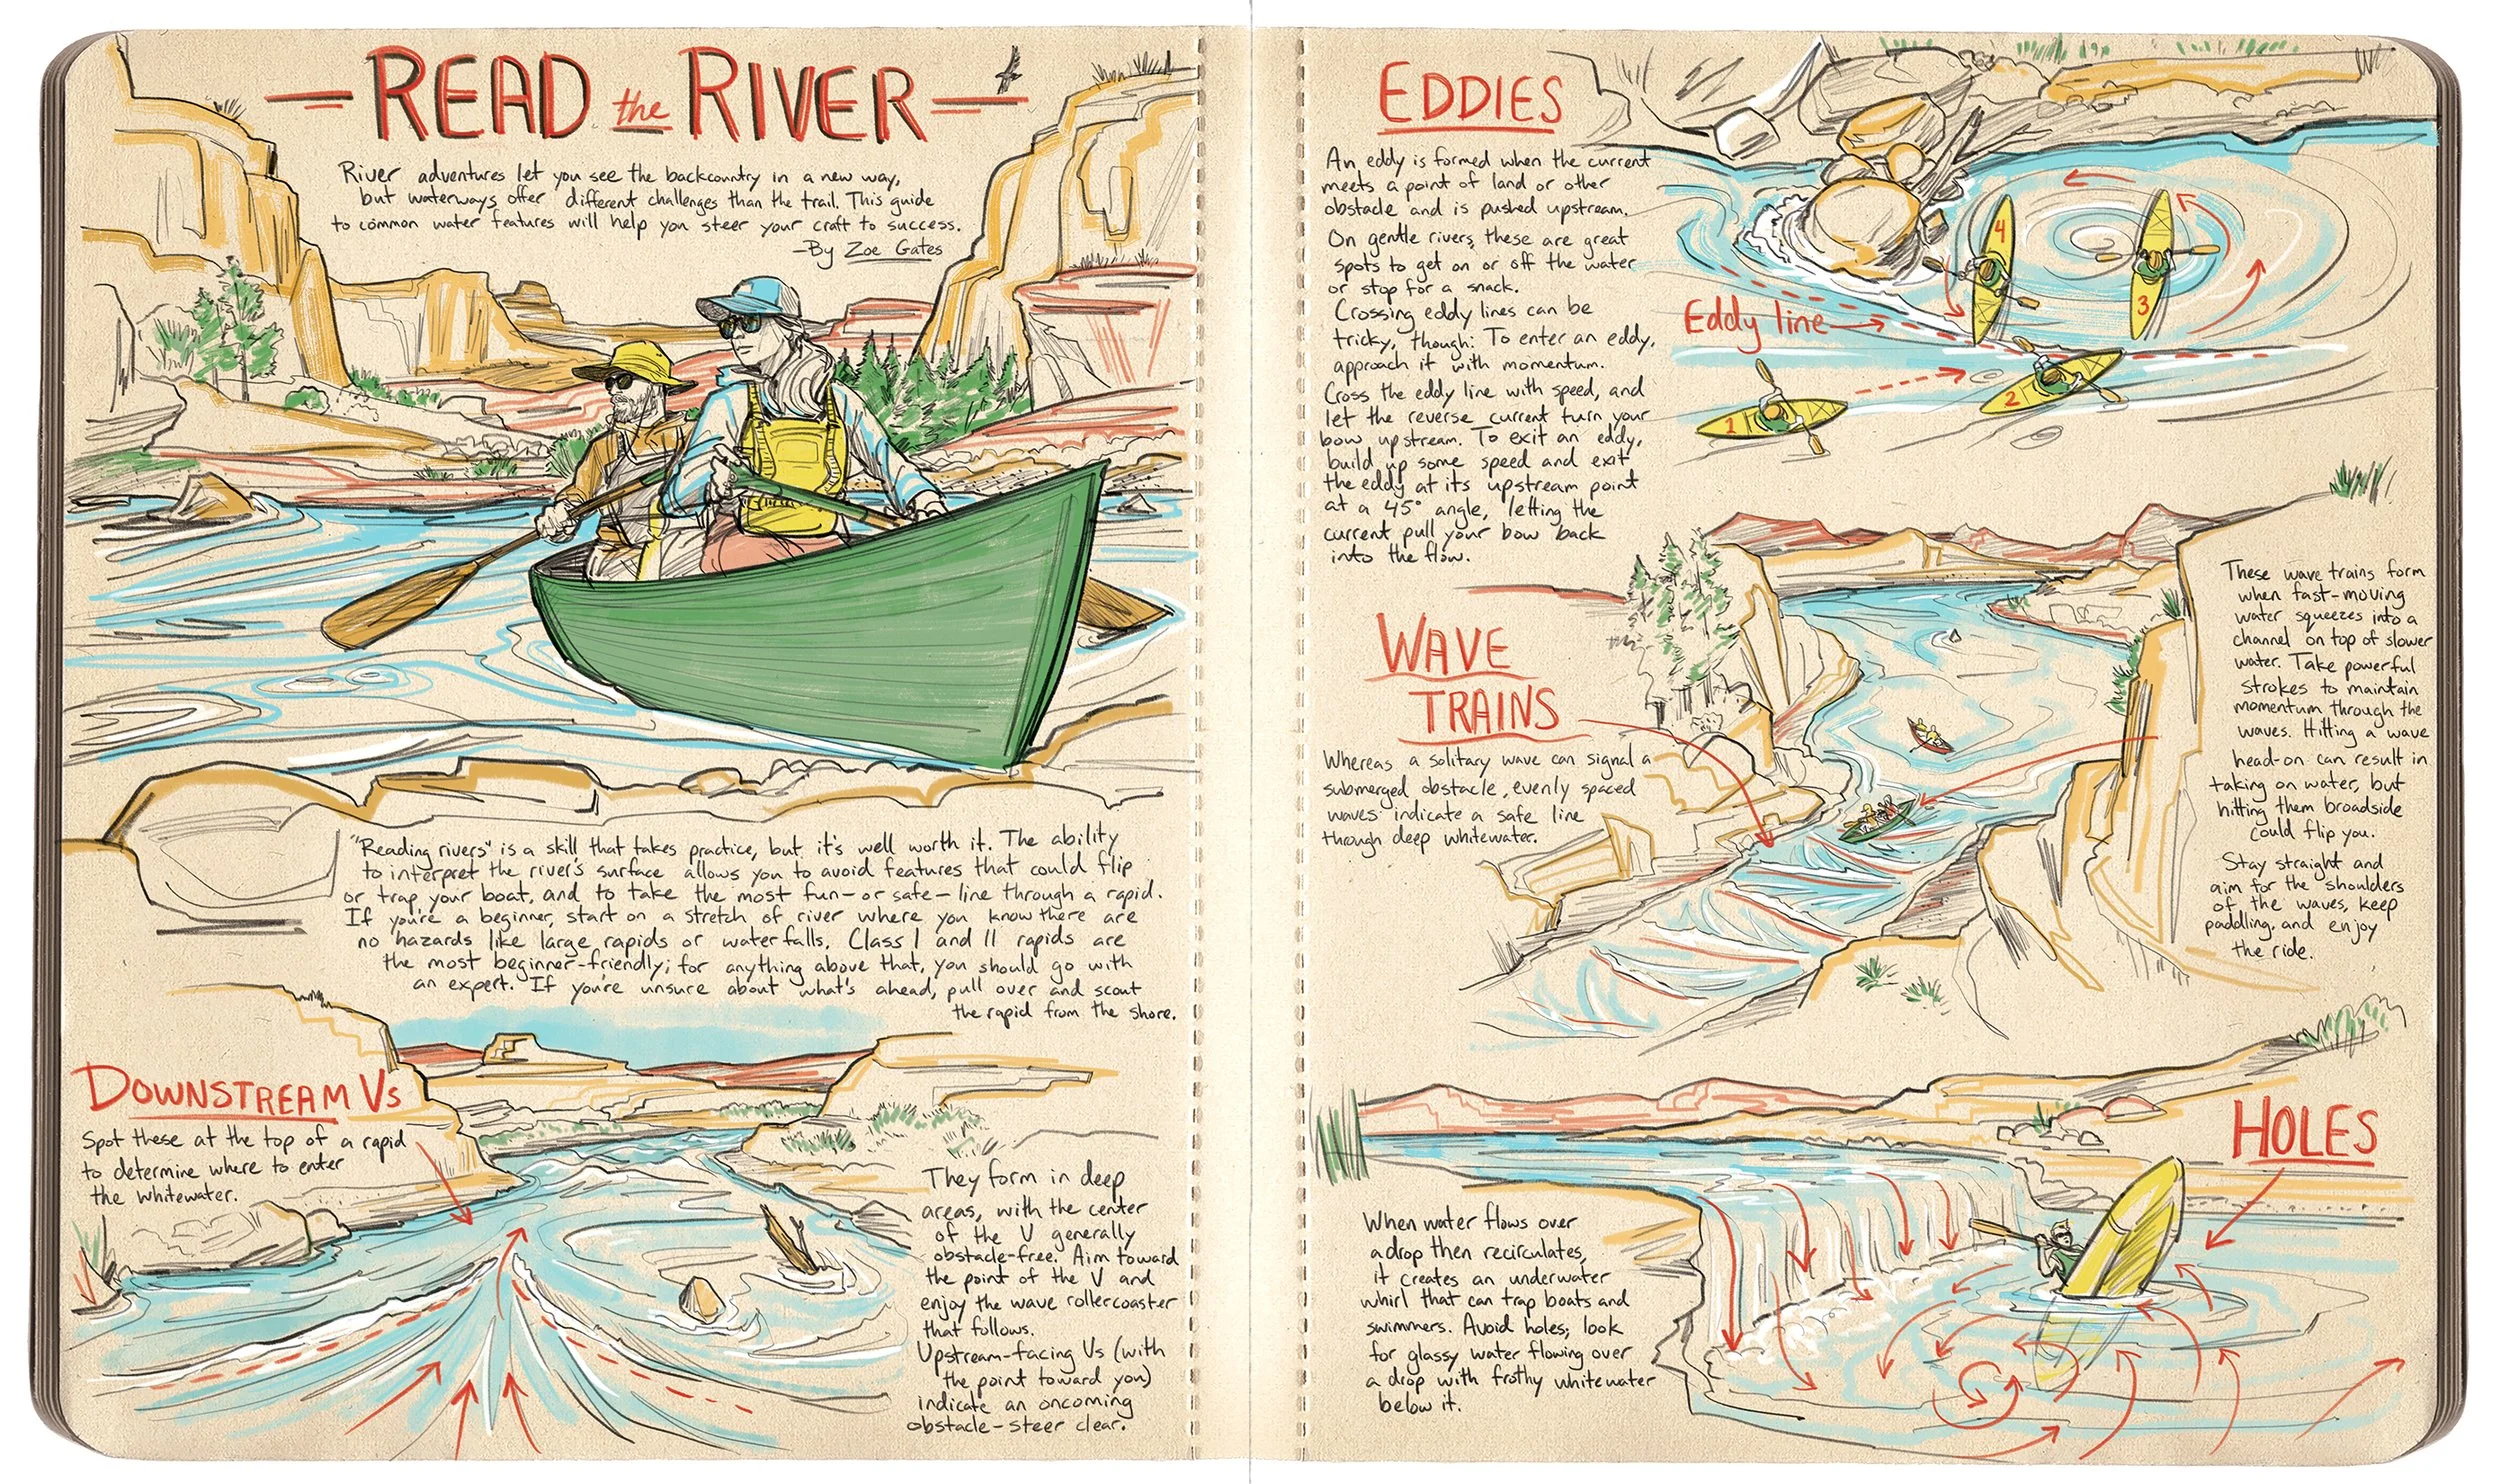 READ the RIVER
River adventures let you see the backcountry in a new way,
but waterways offer different challenges than the trail. This guide
to common water features will help you steer your craft to success.
—By Zoe Gates
"Reading rivers" is a skill that takes practice, but it's well worth it. The ability
to interpret the river's surface allows you to avoid features that could flip
or trap your boat, and to take the most fun—or safe—line through a rapid.
If you're a beginner, start on a stretch of river where you know there are
no hazards like large rapids or waterfalls. Class I and II rapids are
the most beginner-friendly; for anything above that, you should go with
an expert. If you're unsure about what's ahead, pull over and scout
the rapid from the shore.
DOWNSTREAM Vs
Spot these at the top of a rapid
to determine where to enter
the whitewater.
They form in deep
areas, with the center
of the V generally
obstacle-free. Aim toward
the point of the V and
enjoy the wave rollercoaster
that follows.
Upstream-facing Vs (with
the point toward you)
indicate an oncoming
obstacle—steer clear.
EDDIES
An eddy is formed when the current
meets a point of land or other
obstacle and is pushed upstream.
On gentle rivers, these are great
spots to get on or off the water
or stop for a snack.
Crossing eddy lines can be
tricky, though: To enter an eddy,
approach it with momentum.
Cross the eddy line with speed, and
let the reverse current turn your
bow upstream. To exit an eddy,
build up some speed and exit
the eddy at its upstream point
at a 45° angle, letting the
current pull your bow back
into the flow.
Eddy line
1
2
3
4
WAVE
TRAINS
Whereas a solitary wave can signal a
submerged obstacle, evenly spaced
waves indicate a safe line
through deep whitewater.
These wave trains form
when fast-moving
water squeezes into a
channel on top of slower
water. Take powerful
strokes to maintain
momentum through the
waves. Hitting a wave
head-on can result in
taking on water, but
hitting them broadside
could flip you.
Stay straight and
aim for the shoulders
of the waves, keep
paddling, and enjoy
the ride.
HOLES
When water flows over
a drop then recirculates,
it creates an underwater
whirl that can trap boats and
swimmers. Avoid holes; look
for glassy water flowing over
a drop with frothy whitewater
below it.